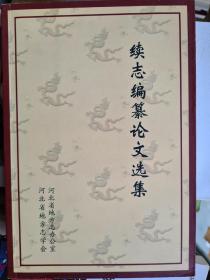 续志编纂论文选集
河北省地方志办公室
河北省地方志学会